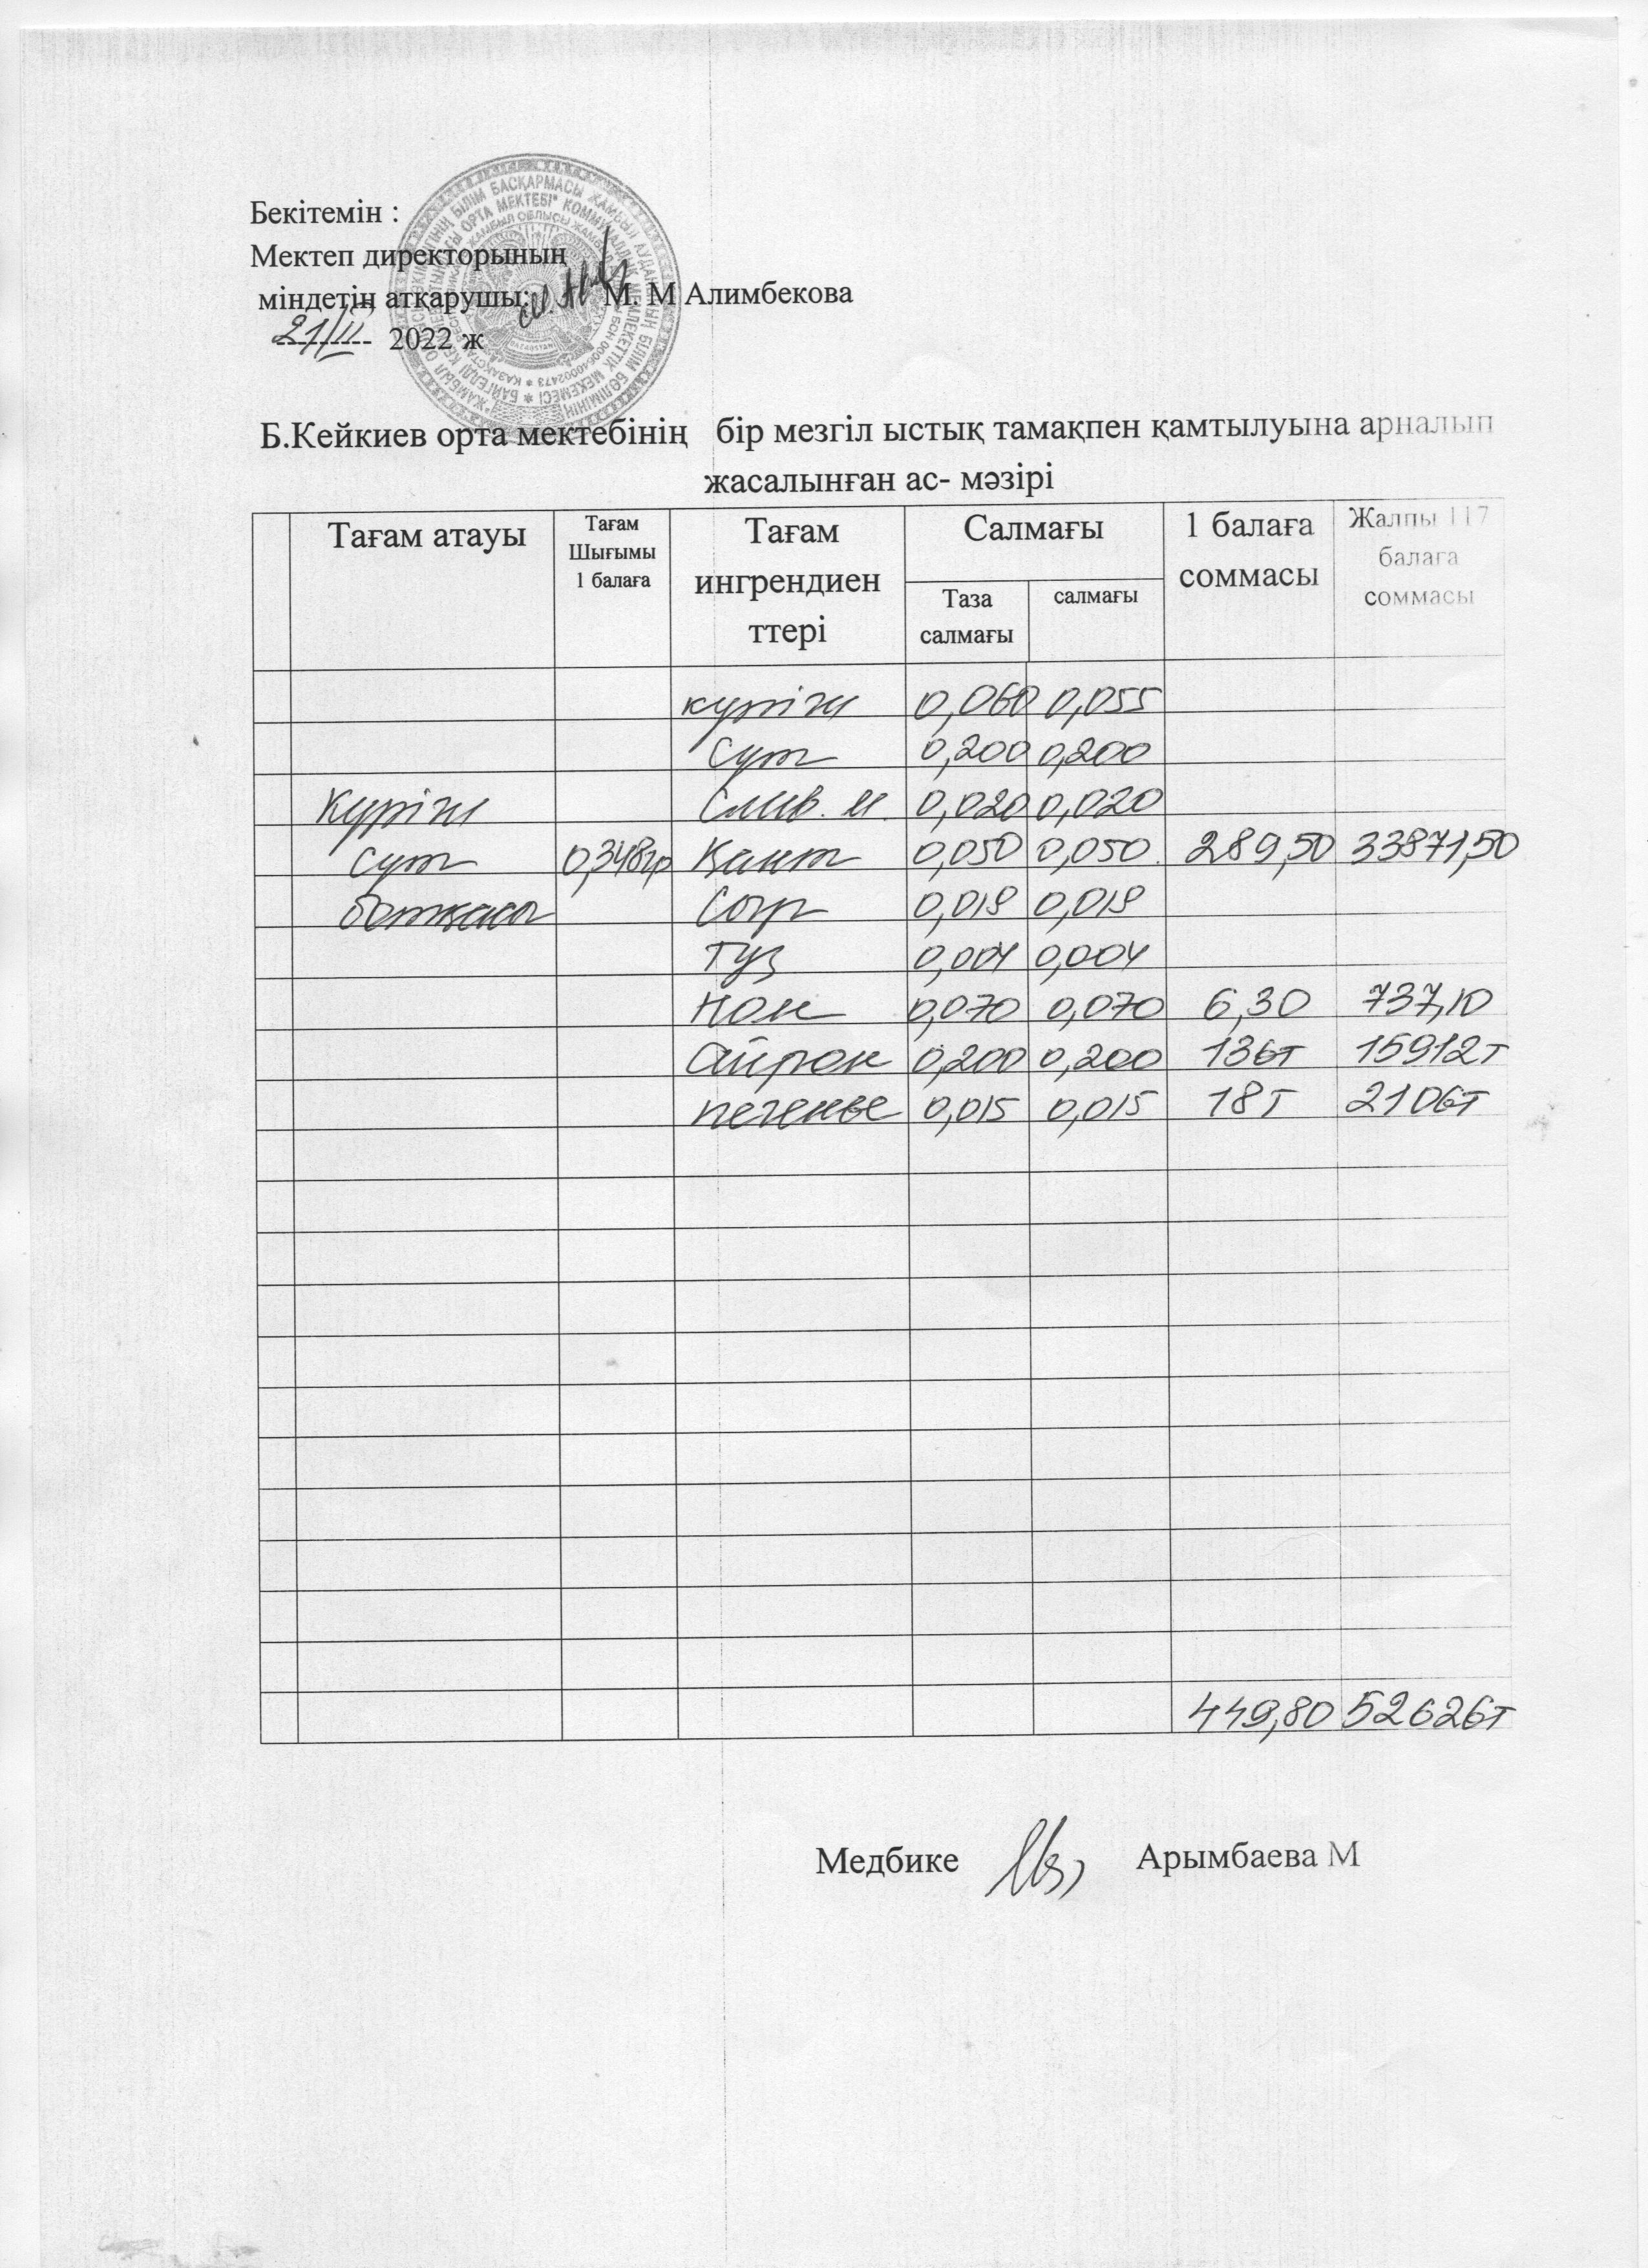 Бекітемін :
Мектеп директорының
міндетің атқарушы: М. М Алимбекова
21/II 2022 ж
Б.Кейкиев орта мектебінің бір мезгіл ыстық тамақпен қамтылуына арналып
жасалынған ас- мәзірі
Тағам атауы
Тағам
Шығымы
1 балаға
Тағам
ингрендиен
ттері
Салмағы
Таза
салмағы
салмағы
1 балаға
соммасы
Жалпы 117
балаға
соммасы
күріш 0,060 0,055
Сүт 0,200 0,200
Күріш Слив. м. 0,020 0,020
сүт 0,348гр Қант 0,050 0,050 289,50 33871,50
ботқасы Сыр 0,018 0,018
Тұз 0,004 0,004
Нан 0,070 0,070 6,30 737,10
Айран 0,200 0,200 136т 15912т
печенье 0,015 0,015 18т 2106т
449,80 52626т
Медбике Арымбаева М